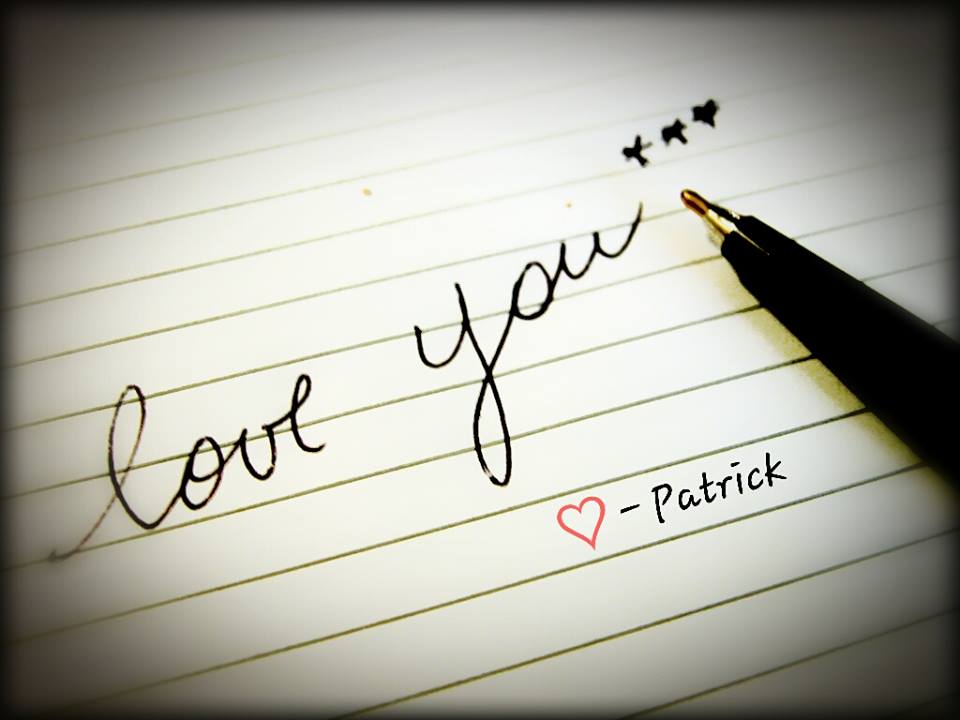 love you ***
♡ - Patrick